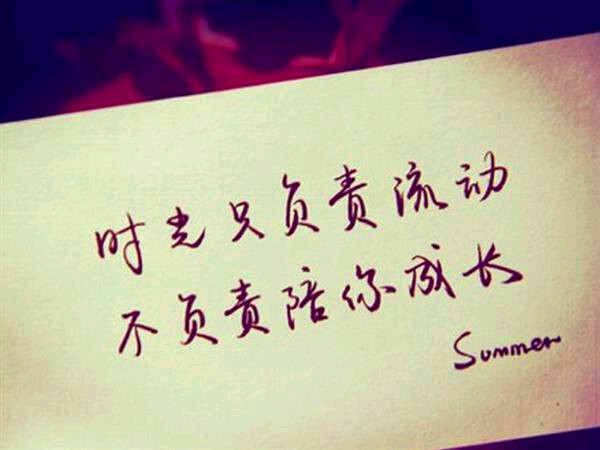 时光只负责流动
不负责陪你成长
Summer